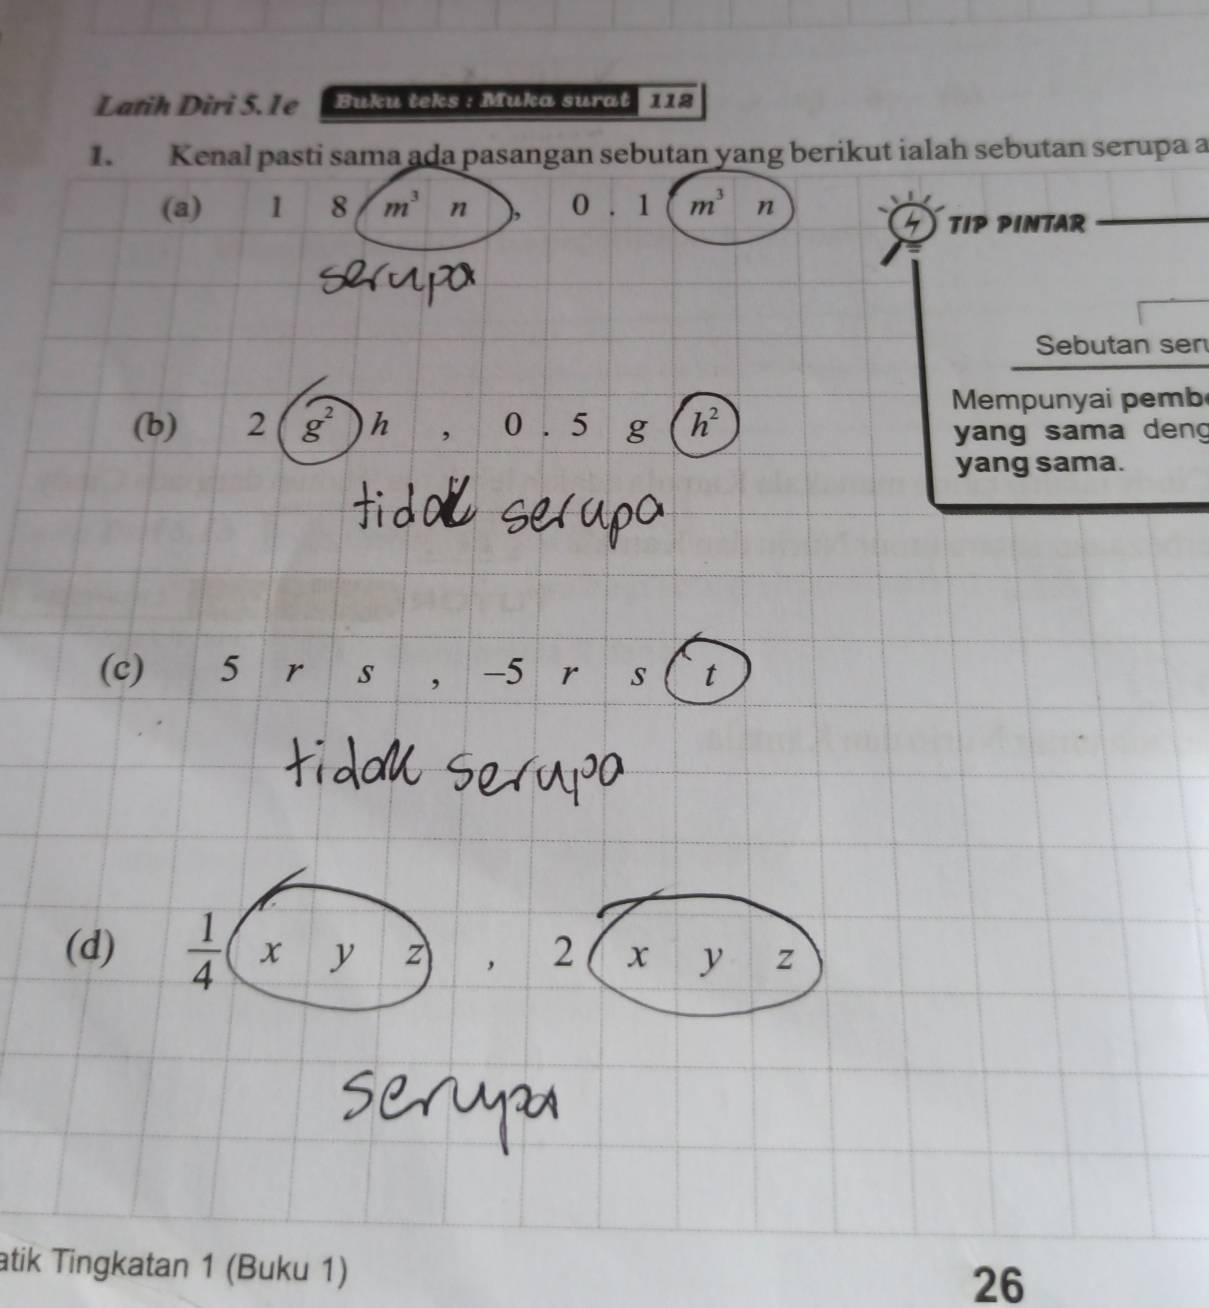 Latih Diri 5.1e Buku teks : Muka surat 112
1. Kenal pasti sama ada pasangan sebutan yang berikut ialah sebutan serupa a
(a) 1 8 m³ n , 0 . 1 m³ n
serupa
TIP PINTAR
Sebutan ser
Mempunyai pemb
yang sama deng
yang sama.
(b) 2 g² h , 0 . 5 g h²
tidak serupa
(c) 5 r s , –5 r s t
tidak serupa
(d) 1/4 x y z , 2 x y z
serupa
atik Tingkatan 1 (Buku 1)
26